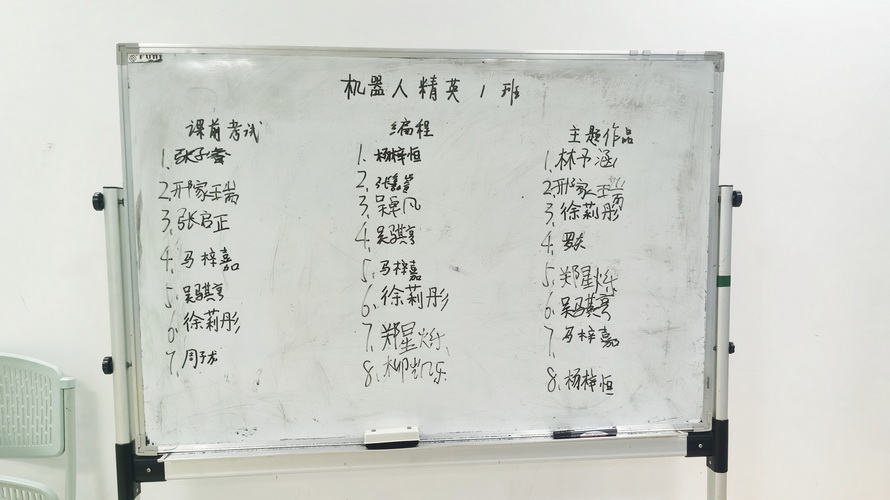 机器人精英1班
课前考试
1.
2.邢家瑞
3.张启正
4.马梓嘉
5.吴骐亨
6.徐莉彤
7.周子龙
编程
1.杨梓恒
2.张嘉
3.吴卓凡
4.吴骐亨
5.马梓嘉
6.徐莉彤
7.郑星烁
8.柳凯乐
主题作品
1.林予涵
2.邢家瑞
3.徐莉彤
4.罗
5.郑星烁
6.吴骐亨
7.马梓嘉
8.杨梓恒